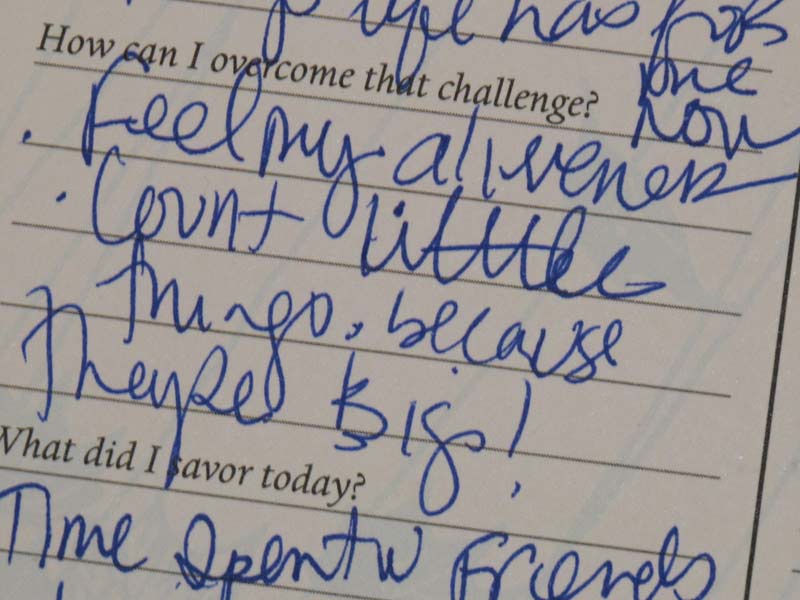 life has for
How can I overcome that challenge?
me
now
. Feel my aliveness
. Count little
things, because
They're Big!
What did I savor today?
Time spent w Friends